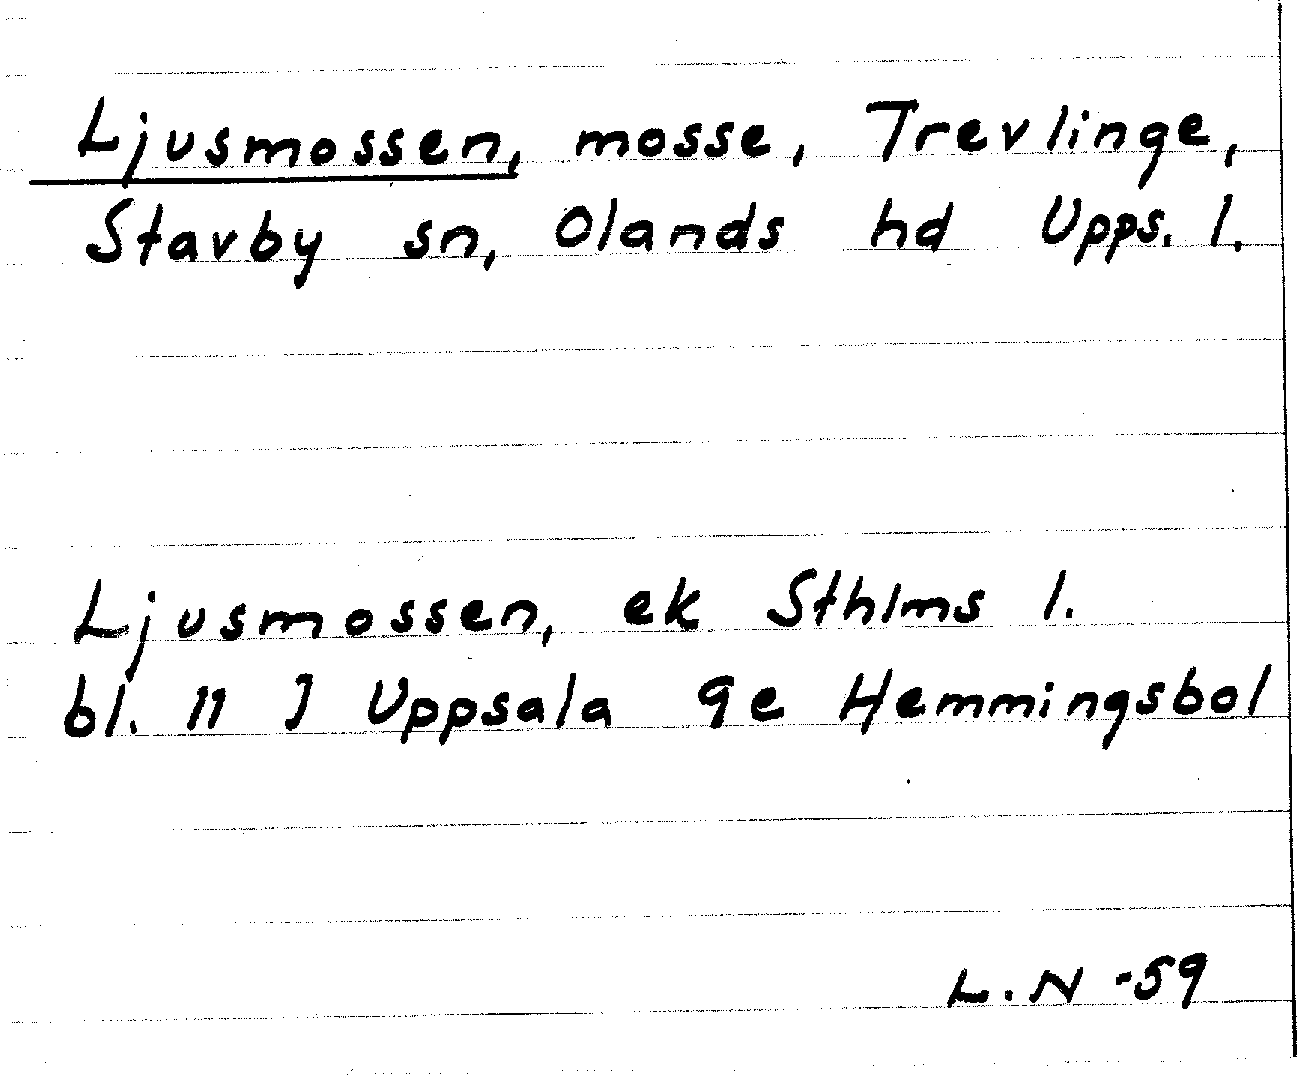 Ljusmossen, mosse, Trevlinge,
Stavby sn, Olands hd Upps. l.
Ljusmossen, ek Sthlms l.
bl. 11 J Uppsala 9e Hemmingsbol
L.N -59